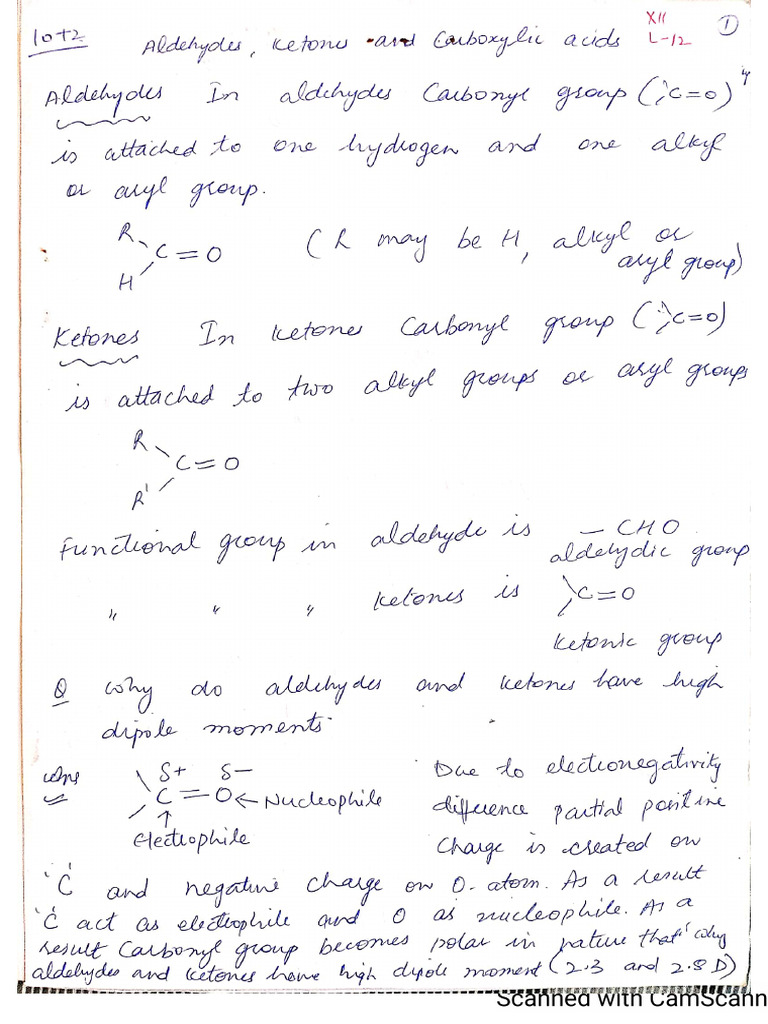 10+2 Aldehydes, Ketones and Carboxylic acids XII L-12 1
Aldehydes In aldehydes Carbonyl group (>C=O)
is attached to one hydrogen and one alkyl
or aryl group.
R
C=O (R may be H, alkyl or
H aryl group)
Ketones In ketones Carbonyl group (>C=O)
is attached to two alkyl groups or aryl groups
R
C=O
R'
Functional group in aldehyde is —CHO
aldehydic group
" " " ketones is >C=O
ketonic group
Q Why do aldehydes and ketones have high
dipole moments
Ans δ+ δ− Due to electronegativity
C=O ← Nucleophile difference partial positive
↑
Electrophile Charge is created on
'C' and negative charge on O-atom. As a result
'C' act as electrophile and O as nucleophile. As a
result Carbonyl group becomes polar in nature that' why
aldehydes and ketones have high dipole moment (2.3 and 2.8 D)
Scanned with CamScann